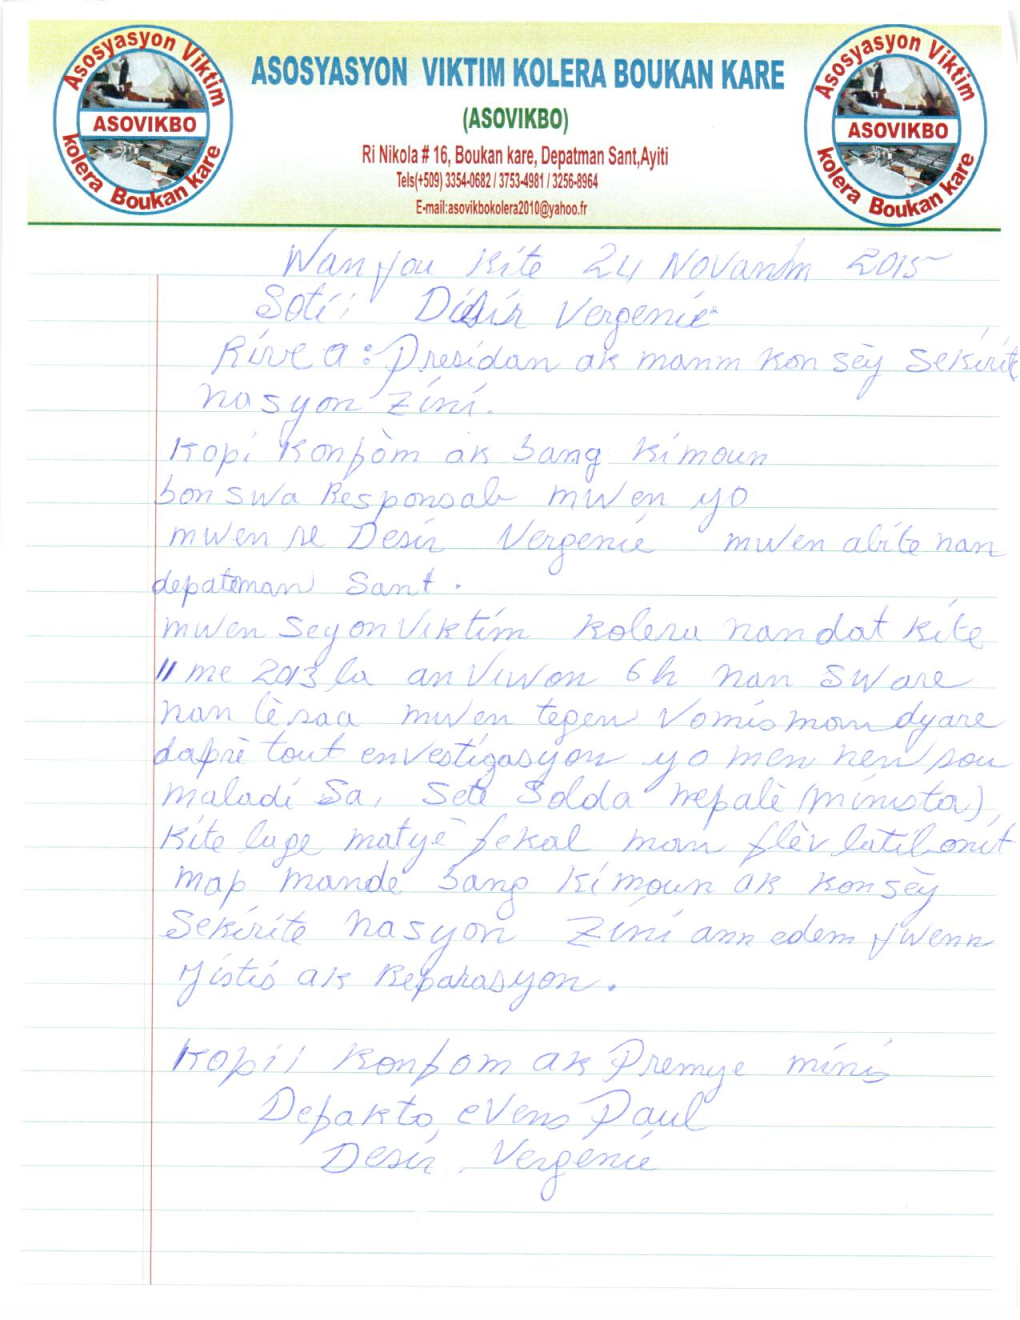 Asosyasyon Viktim
ASOVIKBO
kolera Boukan kare
ASOSYASYON VIKTIM KOLERA BOUKAN KARE
(ASOVIKBO)
Ri Nikola # 16, Boukan kare, Depatman Sant,Ayiti
Tels(+509) 3354-0682 / 3753-4981 / 3256-8964
E-mail:asovikbokolera2010@yahoo.fr
Asosyasyon Viktim
ASOVIKBO
kolera Boukan kare
Wanjou kite 24 Novanm 2015
Soti: Disir Vergenie
Rive a: Presidan ak manm konsèy Sekirite
nasyon zini.
Kopi konfòm ak bang kimoun
bonswa Responsab mwen yo
mwen se Desir Vergenie mwen abite nan
depatman Sant.
mwen Seyon Viktim kolera nan dat kite
11 me 2013 la anviwon 6h nan Sware
nan lèsaa mwen tegen Vomisman dyare
daprè tout envestigasyon yo men nen sou
maladi Sa, Sete Solda nepalè (minista),
kite lage matyè fekal nan flèv latibonit
map mande bang kimoun ak konsèy
Sekirite nasyon zini ann edem jwenn
jistis ak Reparasyon.
Kopi: konfom ak Premye minis
Defakto, evens Paul
Desir, Vergenie